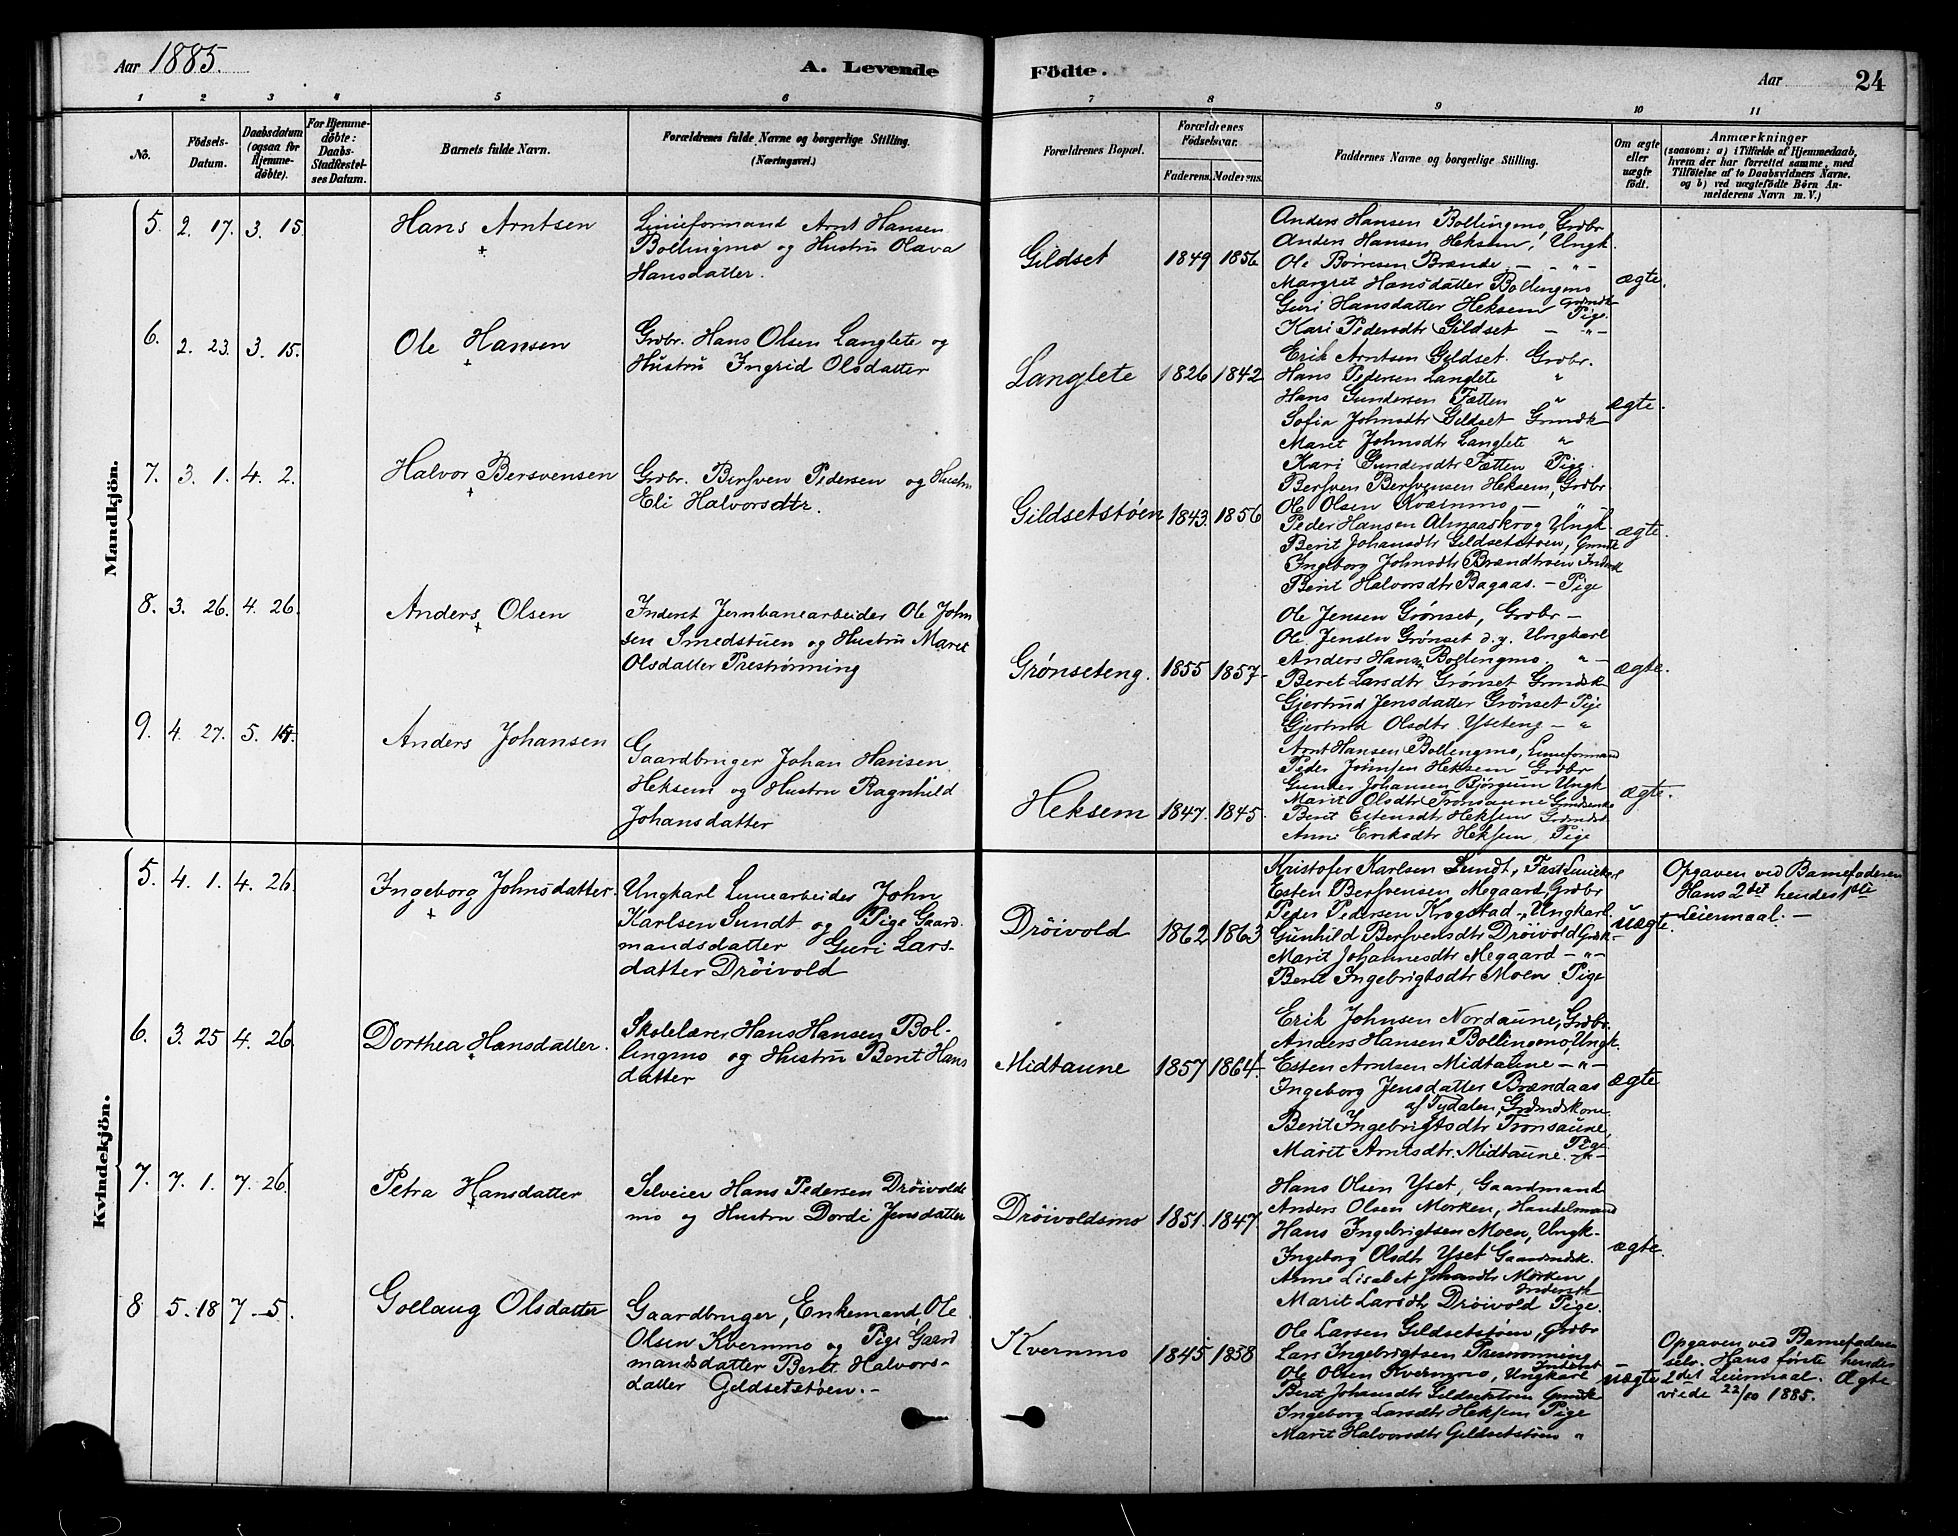 Aar 1885.
A. Levende
Födte.
Aar
24
1 2 3 4 5 6
7 8 9 10 11
No.
Födsels-
Datum.
Daabsdatum
(ogsaa for
Hjemme-
døbte).
For Hjemme-
døbte:
Daabs-
Stadfæstel-
ses Datum.
Barnets fulde Navn.
Forældrenes fulde Navne og borgerlige Stilling.
(Næringsvei.)
Forældrenes Bopæl.
Forældrenes
Födselsaar.
Faderens. Moderens.
Faddernes Navne og borgerlige Stilling.
Om ægte
eller
uægte
födt.
Anmærkninger
(saasom: a) i Tilfælde af Hjemmedaab,
hvem der har forrettet samme, med
Tilföielse af to Daabsvidners Navne,
og b) ved uægtefödte Börn An-
melderens Navn m. V.)
Mandkjön.
5. 2. 17. 3. 15.
Hans Arntsen
Linieformand Arnt Hansen
Bollingmo og Hustru Olava
Hansdatter.
Gildset 1849 1856
Anders Hansen Bollingmo, Grdbr
Anders Hansen Heksem, Ungk.
Ole Börresen Brænde — „ —
Margret Hansdatter Bollingmo
Grdmdk.
Guri Hansdatter Heksem Pige.
Kari Pedersdtr Gildset — „ —
ægte.
6. 2. 23. 3. 15.
Ole Hansen
Grdbr. Hans Olsen Langlete og
Hustru Ingrid Olsdatter
Langlete 1826 1842
Erik Arntsen Gildset. Grdbr.
Hans Pedersen Langlete „
Hans Gundersen Fætten „
Sofia Johnsdtr Gildset Grmdk
Marit Johnsdtr Langlete „
Kari Gundersdtr Fætten Pige.
ægte.
7. 3. 1. 4. 2.
Halvor Bersvensen
Grdbr. Bersven Pedersen og Hustru
Eli Halvorsdtr.
Gildsetstöen 1843. 1856
Bersven Bersvensen Heksem, Grdbr
Ole Olsen Kvernmo — „ —
Peder Hansen Almaaskrog Ungk.
Berit Johansdtr Gildsetstöen, Grmdk
Ingeborg Johnsdtr Brændtroen Indk
Berit Halvorsdtr Bagaas. — Pige
ægte.
8. 3. 26. 4. 26.
Anders Olsen
Inderst Jernbanearbeider Ole John
sen Smedstuen og Hustru Marit
Olsdatter Preströnning
Grönseteng. 1855 1857.
Ole Jensen Grönset, Grdbr —
Ole Jensen Grönset d.y. Ungkarl
Anders Hansn Bollingmo „ —
Beret Larsdtr Grönset Grmdsk
Gjertrud Jensdatter Grönset Pige
Gjertrud Olsdtr Yseteng — „
ægte.
9. 4. 27. 5. 14.
Anders Johansen
Gaardbruger Johan Hansen
Heksem og Hustru Ragnhild
Johansdatter
Heksem 1847. 1845.
Arnt Hansen Bollingmo, Linieformand
Peder Johnsen Heksem Grdbr
Gunder Johansen Björgum Ungk
Marit Olsdtr Tronsaune Grmdsenke
Berit Estensdtr Heksem Grdmdsk
Anne Eriksdtr Heksem, Pige
ægte.
Kvindekjön.
5. 4. 1. 4. 26.
Ingeborg Johnsdatter.
Ungkarl Liniearbeider John
Karlsen Sundt og Pige Gaard
mandsdatter Guri Lars-
datter Dröivold
Dröivold 1862 1863
Kristofer Karlsen Sundt, Fast Liniekarl
Esten Bersvensen Megaard Grdbr
Peder Pedersen Krogstad, Ungkarl
Gunhild Bersvensdtr Dröivold Grdk-
Marit Johannesdtr Megaard — „ —
Berit Ingebrigtsdtr Moen Pige
uægte.
Opgaven ved Barnefaderen
Hans 2det hendes 1ste
Leiermaal. —
6. 3. 25 4. 26.
Dorthea Hansdatter.
Skolelærer Hans Hansen Bol-
lingmo og Hustru Berit Hans
datter
Midtaune 1857 1864.
Erik Johnsen Nordaune, Grdbr
Anders Hansen Bollingmo, Ungk.
Esten Arntsen Midtaune — „ —
Ingeborg Jensdatter Brændaas
af Tydalen, Grdmdskone
Berit Ingebrigtsdtr Tronsaune,
Pige
Marit Arntsdtr Midtaune. — „ —
ægte
7. 7. 1. 7. 26.
Petra Hansdatter
Selveier Hans Pedersen Dröivolds
mo og Hustru Dordi Jensdatter
Dröivoldsmo 1851. 1847
Hans Olsen Yset, Gaardmand
Anders Olsen Morken, Handelsmand
Hans Ingebrigtsen Moen, Ungk-
Ingeborg Olsdtr Yset Gaardmdsk.
Anne Lisabet Johansdtr Morken
Inderstk
Marit Larsdtr Dröivold Pige.
ægte.
8 5. 18 7. 5.
Gollaug Olsdatter
Gaardbruger, Enkemand, Ole
Olsen Kvernmo og Pige Gaard
mandsdatter Berit Halvors-
datter Gildsetstöen. —
Kvernmo 1845 1858
Ole Larsen Gildsetstöen, Grdbr
Lars Ingebrigtsen Preströnning
Inderst
Ole Olsen Kvernmo, Ungkarl
Berit Johansdtr Gildsetstöen Grmdk
Ingeborg Larsdtr Heksem Pige
Marit Halvorsdtr Gildsetstöen „
uægte
Opgaven ved Barnefaderen
selv. Hans förste hendes
2det Leiermaal. Ægte-
viede 22/10 1885.